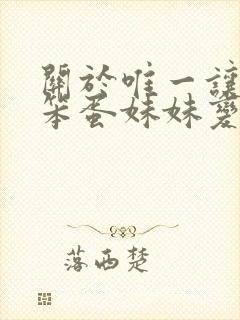 關於唯一讓
笨蛋妹妹愛
落西楚